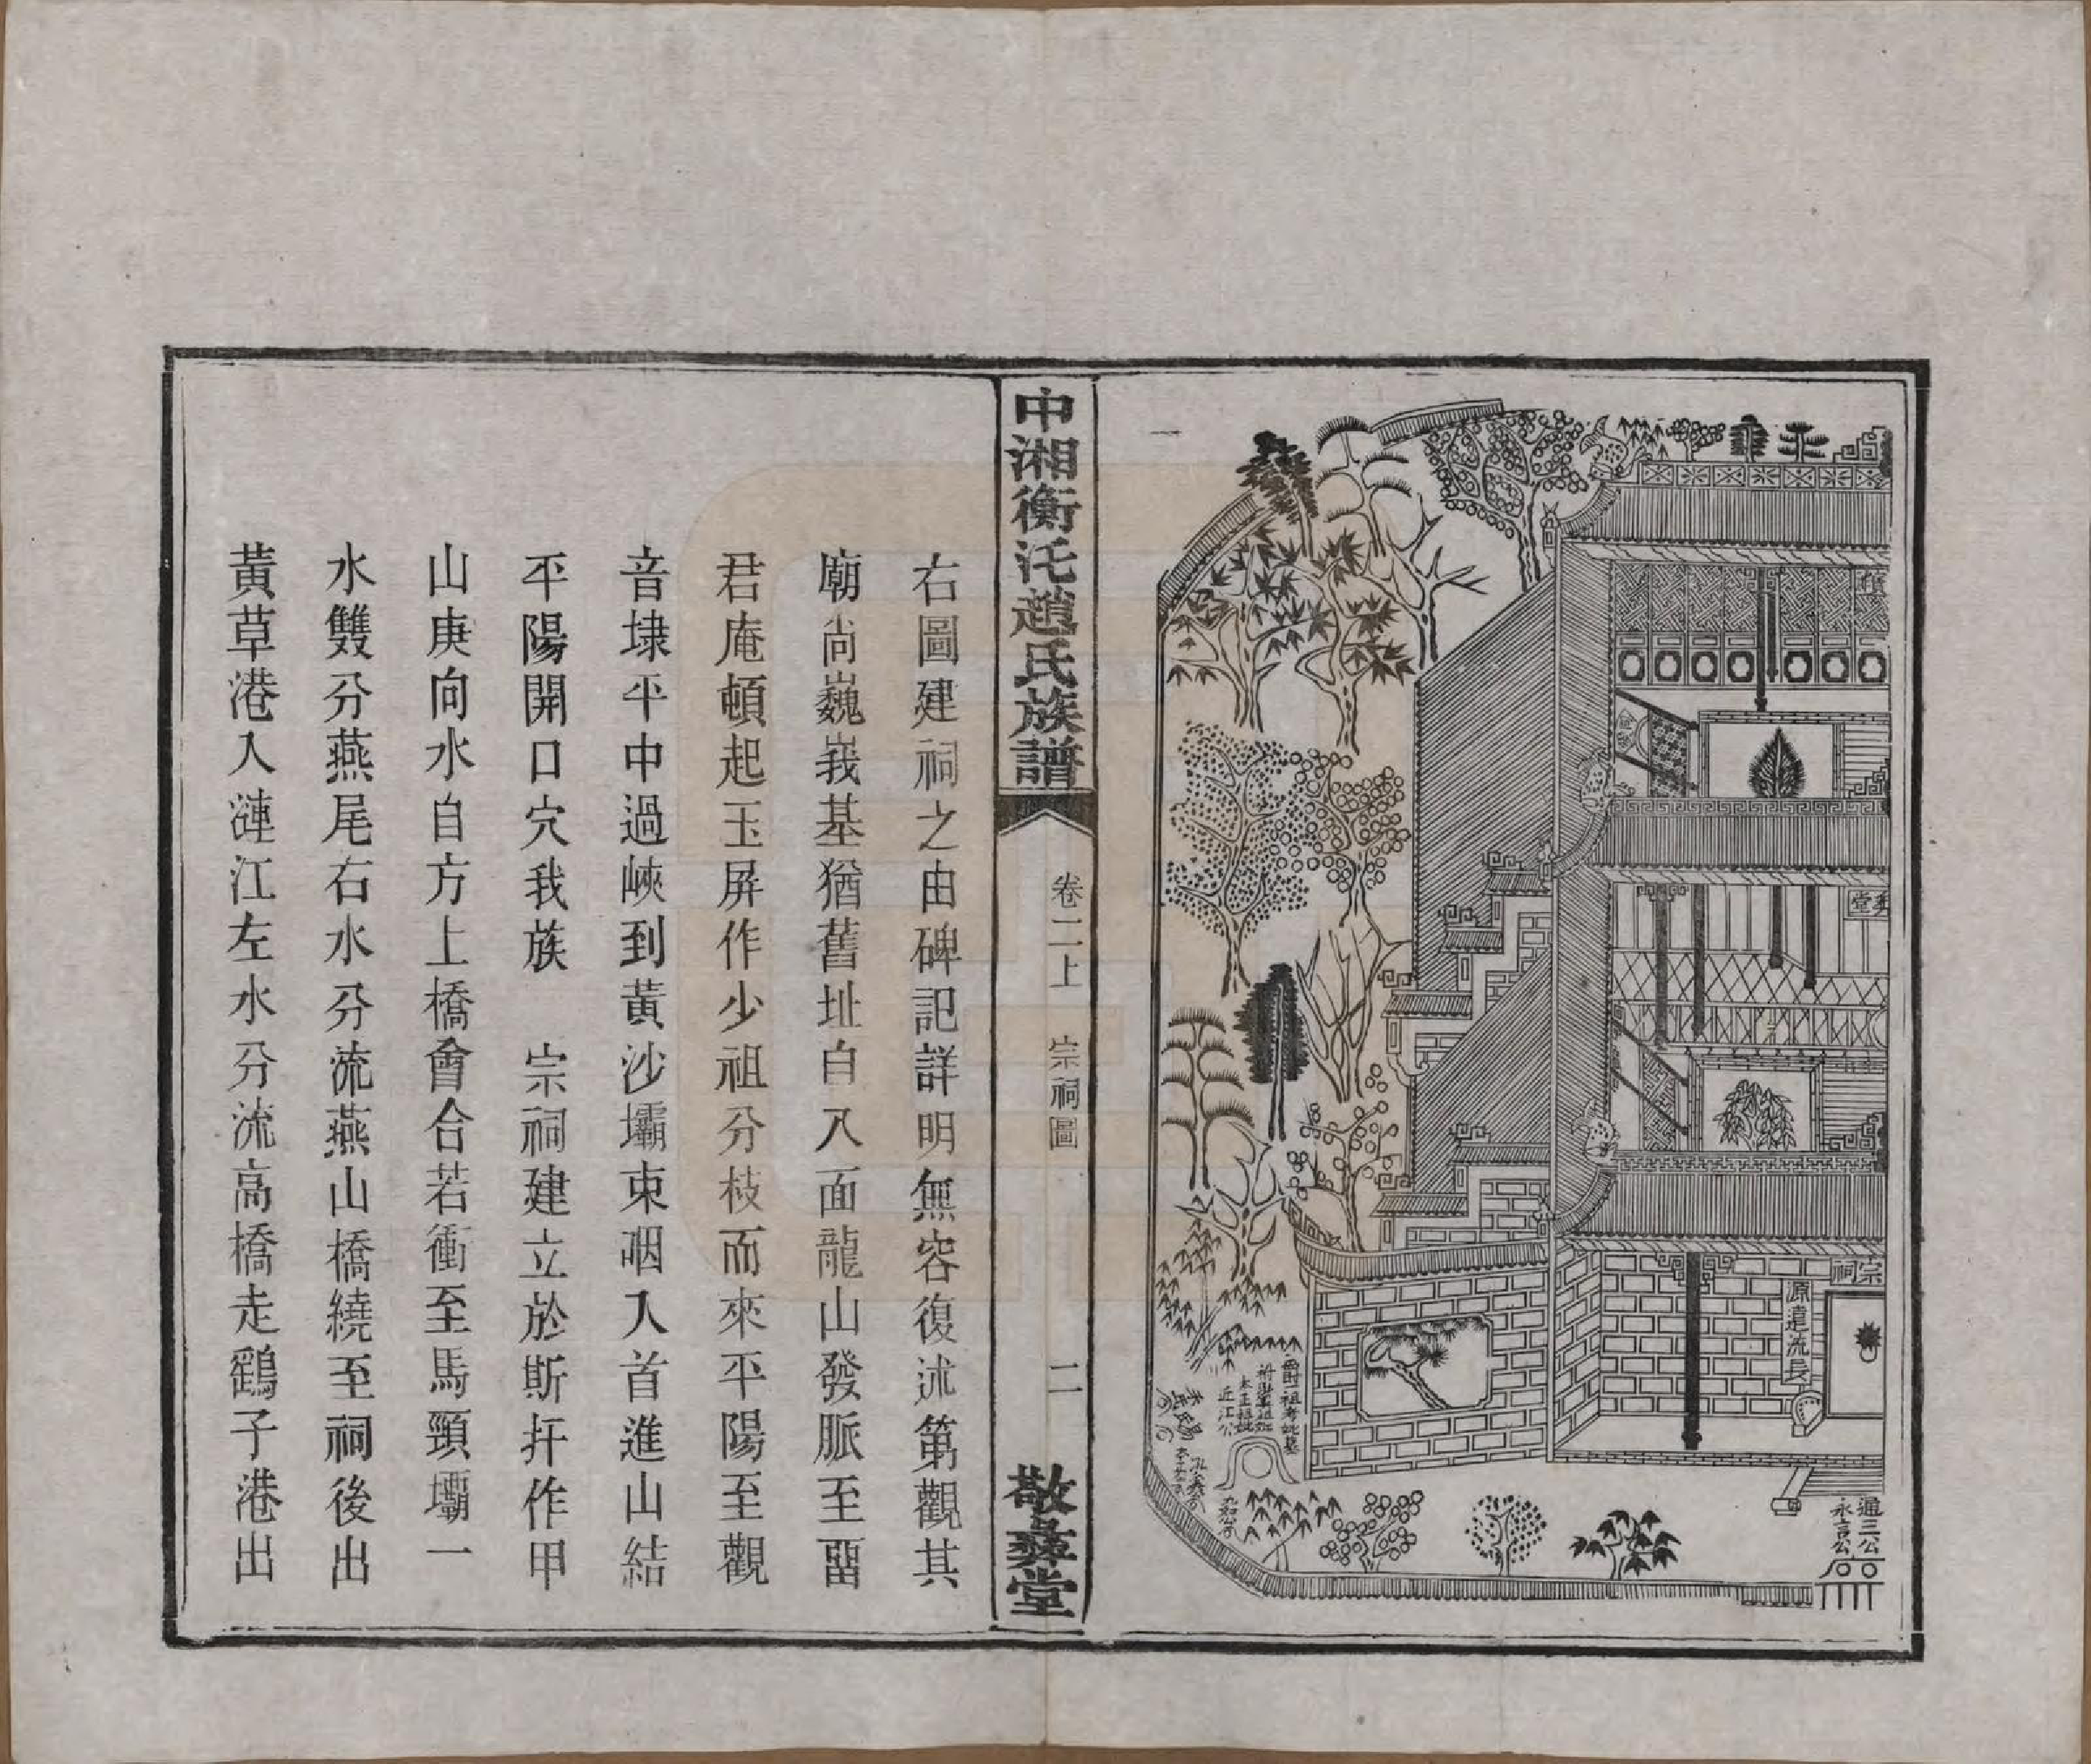 宗祠
源遠流長
通三公
永言公
近江公
中湘衡汑趙氏族譜
卷二上
宗祠圖
二
敬彝堂
右圖建祠之由碑記詳明無容復述第觀其
廟尚巍峩基猶舊址自八面龍山發脈至畱
君庵頓起玉屏作少祖分枝而來平陽至觀
音埭平中過峽到黃沙壩束咽入首進山結
平陽開口穴我族　宗祠建立於斯扞作甲
山庚向水自方上橋會合若衝至馬頸壩一
水雙分燕尾右水分流燕山橋繞至祠後出
黃草港入漣江左水分流高橋走鶴子港出